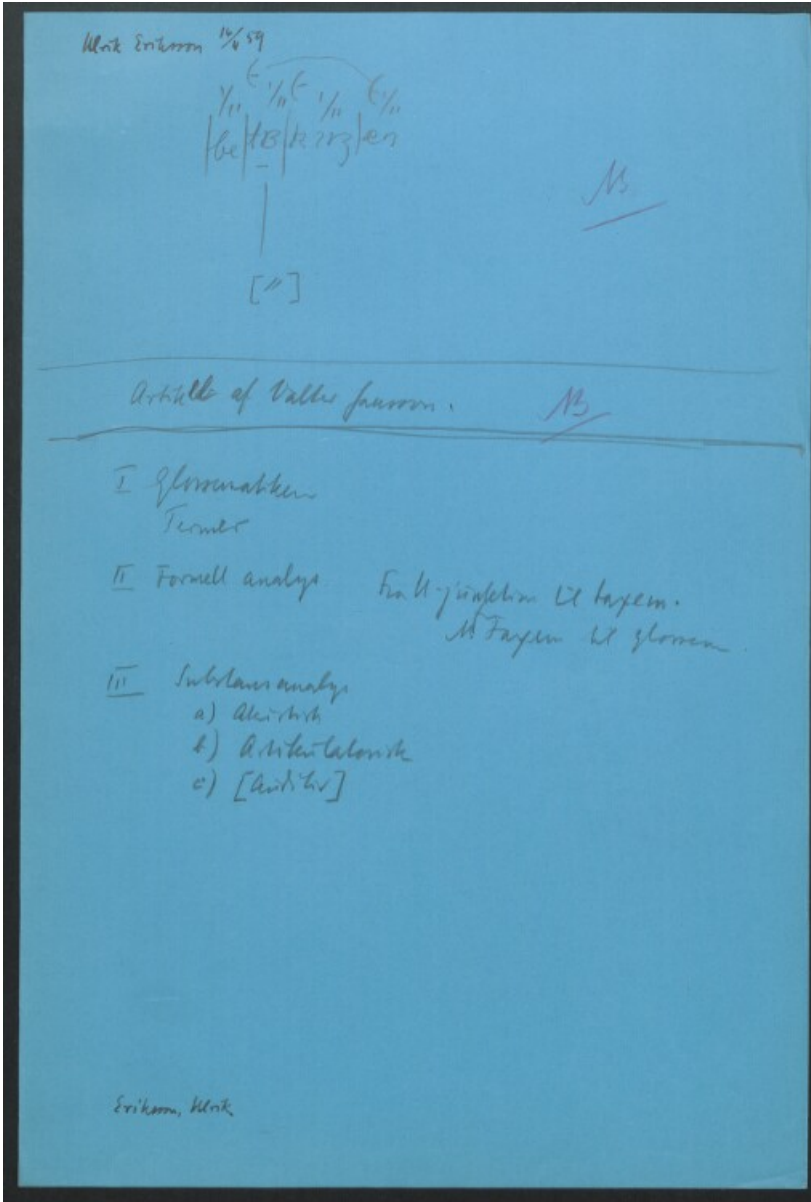 Ulrik Eriksson 16/11 59
|be|
NB
["]
Artikel af Valter Jansson. NB
I Glossematiken
Termer
II Formell analys Fra U-junktion til taxem.
NB Taxem til glossem.
III Substansanalys
a) Akustisk
b) Artikulatorisk
c) [Auditiv]
Eriksson, Ulrik